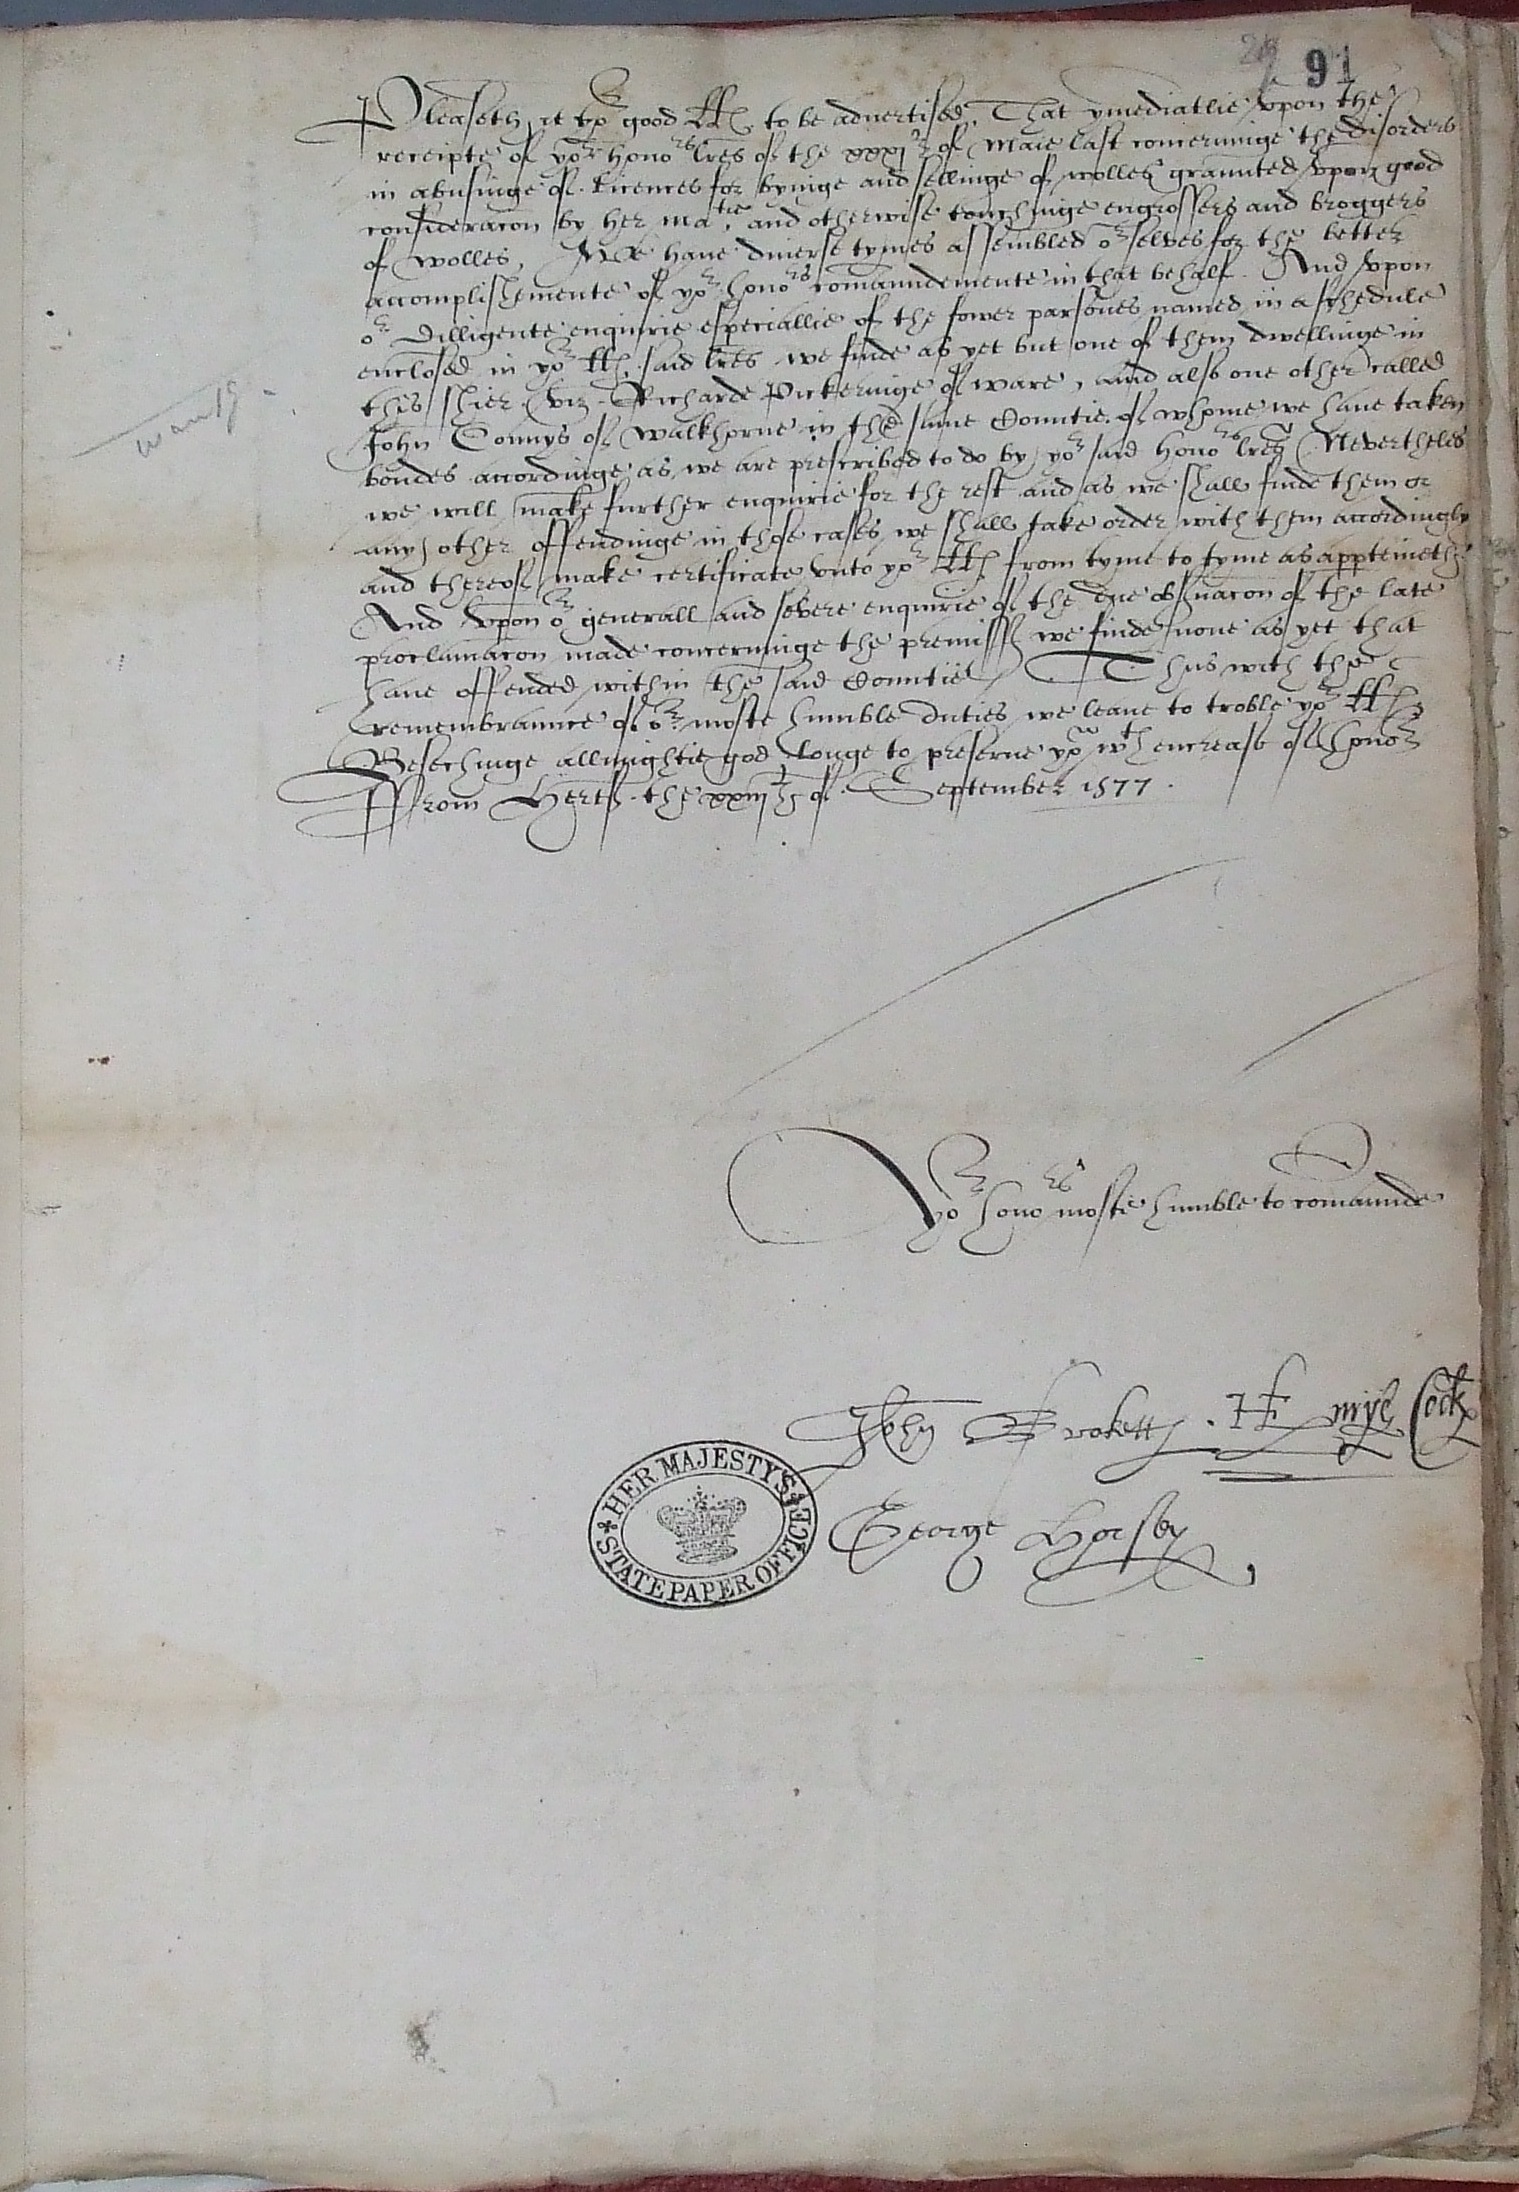 91
Pleaseth it yor good LLs to be advertised, That ymediatlie vpon the
receipte of yor honors lres of the xxxjth of Maie last concerninge the disorders
in abusinge of licences for byinge and sellinge of wolles graunted vpon good
consideracon by her matie, and otherwise touchinge engrossers and broggers
of wolles, We haue diuerse tymes assembled or selves for the better
accomplishemente of yor honors comaundemente in that behalf. And vpon
or dilligente enquirie especiallie of the fower parsones named in a schedule
enclosed in yor LLs said lres we finde as yet but one of them dwellinge in
this shier viz Richarde Pickeringe of ware, and also one other called
John Connys of Walkhorne in the same Countie. of whome we haue taken
bondes accordinge as we are prescribed to do by yor said honors lres Nevertheles
we will make further enquirie for the rest and as we shall finde them or
any other offendinge in those cases we shall take order with them accordingly
and thereof make certificate vnto yor LLs from tyme to tyme as apperteineth
And vpon or generall and severe enquirie of the due obseruacon of the late
proclamacon made concerninge the premisses we finde none as yet that
haue offended within the said Countie / Thus with the
remembraunce of or moste humble duties we leaue to troble yor LLs
Besechinge allmightie god longe to preserue yor wth encrease of honor
ffrom Hertf. the xxiijth of September 1577.
Yor honors moste humble to comaunde
John Brokett. Henrye Cock
George Horsey
HER MAJESTY'S STATE PAPER OFFICE